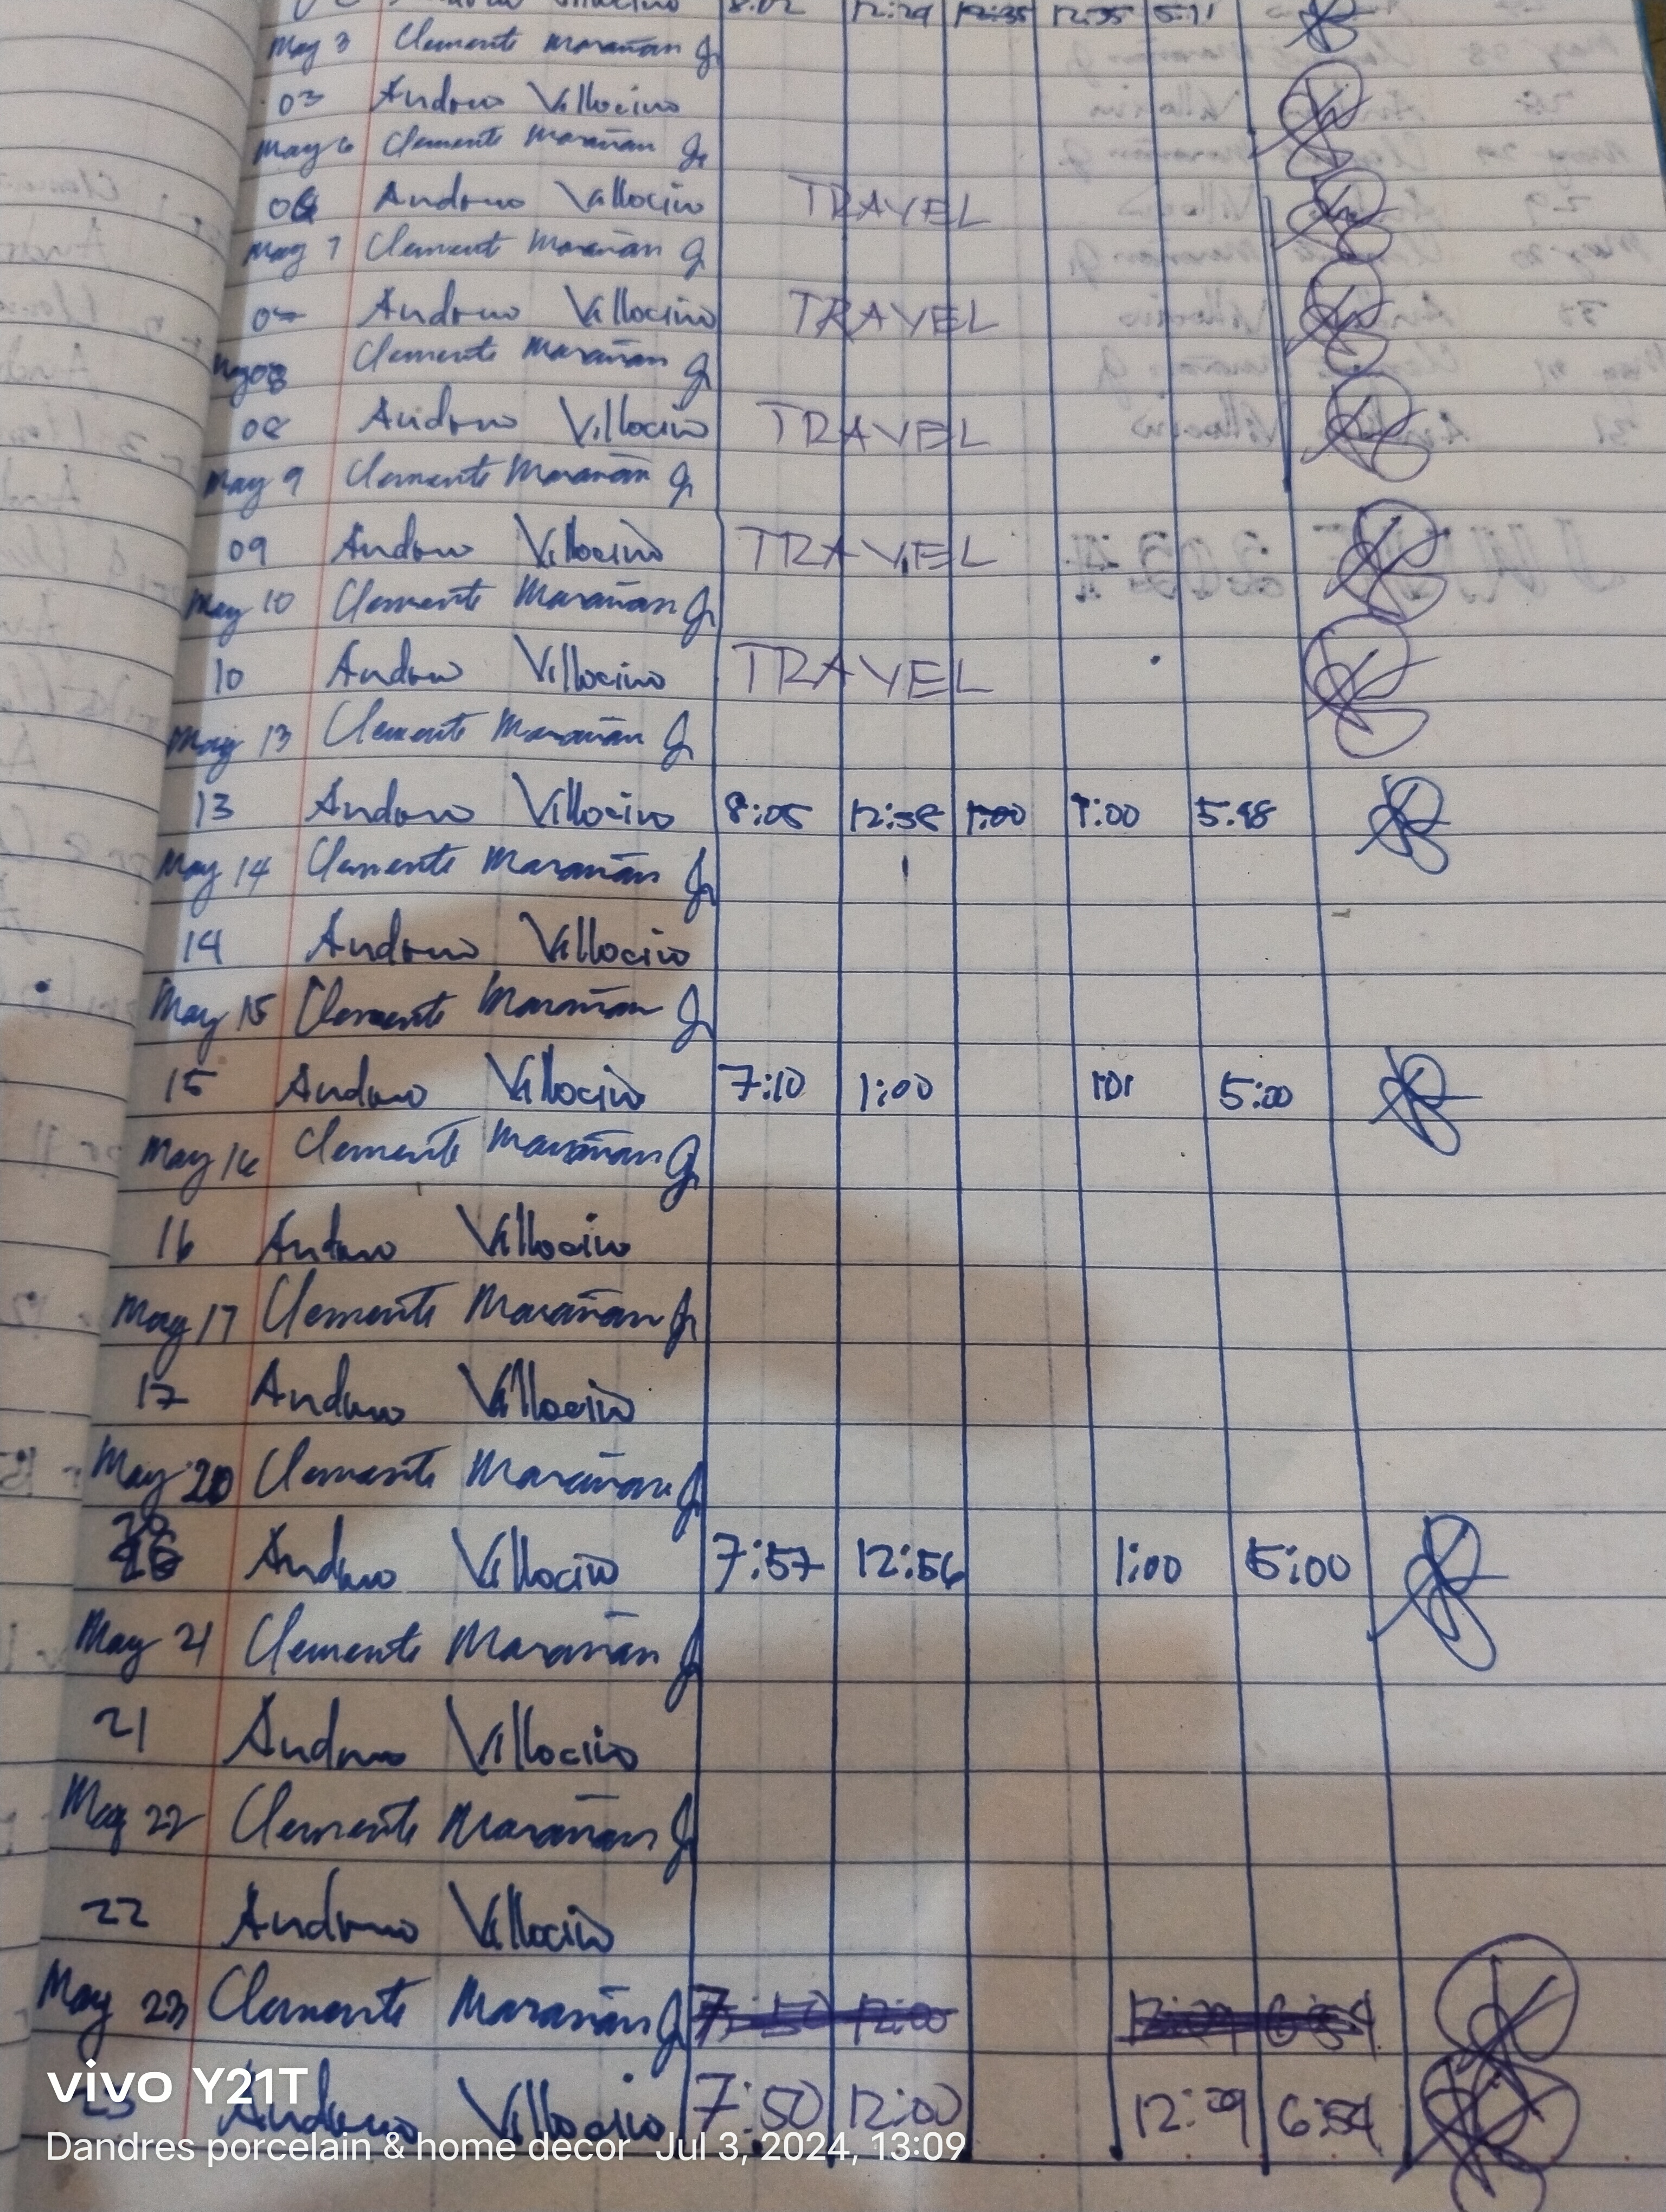 Villocino 8:02 12:29 12:35 12:35 5:11
May 3 Clemente Marañan Jr
03 Andono Villocino
May 6 Clemente Marañan Jr
06 Andono Villocino TRAVEL
May 7 Clement Marañan Jr
07 Andono Villocino TRAVEL
May 08 Clemente Marañan Jr
08 Andono Villocino TRAVEL
May 9 Clemente Marañan Jr
09 Andono Villocino TRAVEL
May 10 Clemente Marañan Jr
10 Andono Villocino TRAVEL
May 13 Clemente Marañan Jr
13 Andono Villocino 8:05 12:58 1:00 1:00 5:48
May 14 Clemente Marañan Jr
14 Andono Villocino
May 15 Clemente Marañan Jr
15 Andono Villocino 7:10 1:00 1:01 5:00
May 16 Clemente Marañan Jr
16 Andono Villocino
May 17 Clemente Marañan Jr
17 Andono Villocino
May 20 Clemente Marañan Jr
20 Andono Villocino 7:57 12:56 1:00 5:00
May 21 Clemente Marañan Jr
21 Andono Villocino
May 22 Clemente Marañan Jr
22 Andono Villocino
May 23 Clemente Marañan Jr 7:50 12:00 12:09 6:54
23 Andono Villocino 7:50 12:00 12:09 6:54
vivo Y21T
Dandres porcelain & home decor Jul 3, 2024, 13:09